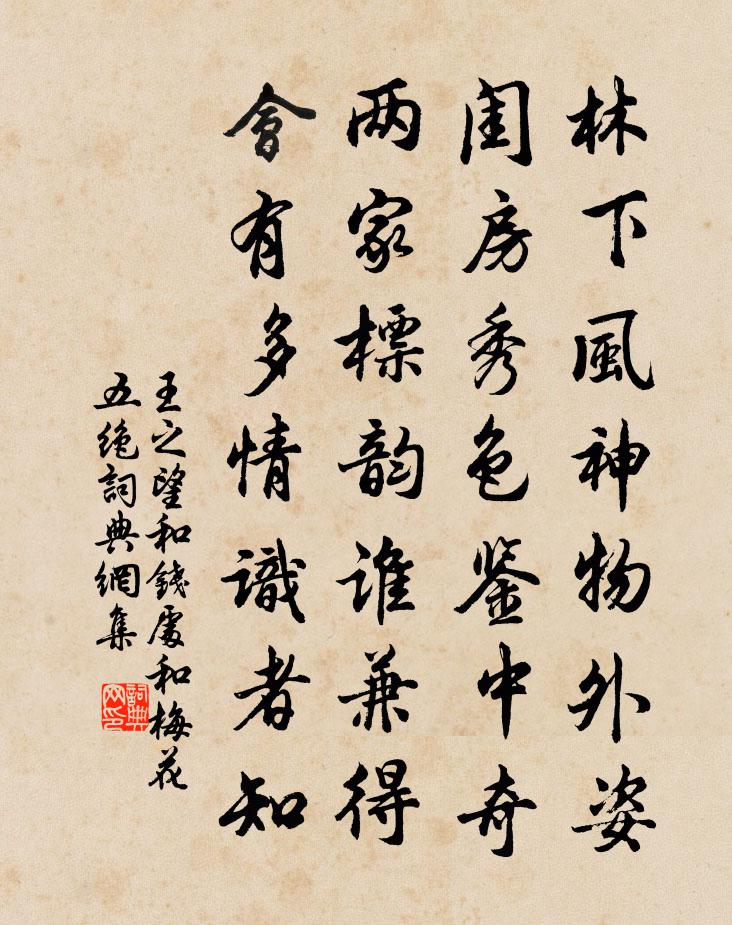 林下風神物外姿
闺房秀色鉴中奇
两家標韵谁兼得
會有多情識者知
王之望和錢處和梅花
五绝詞典網集
詞典
网印